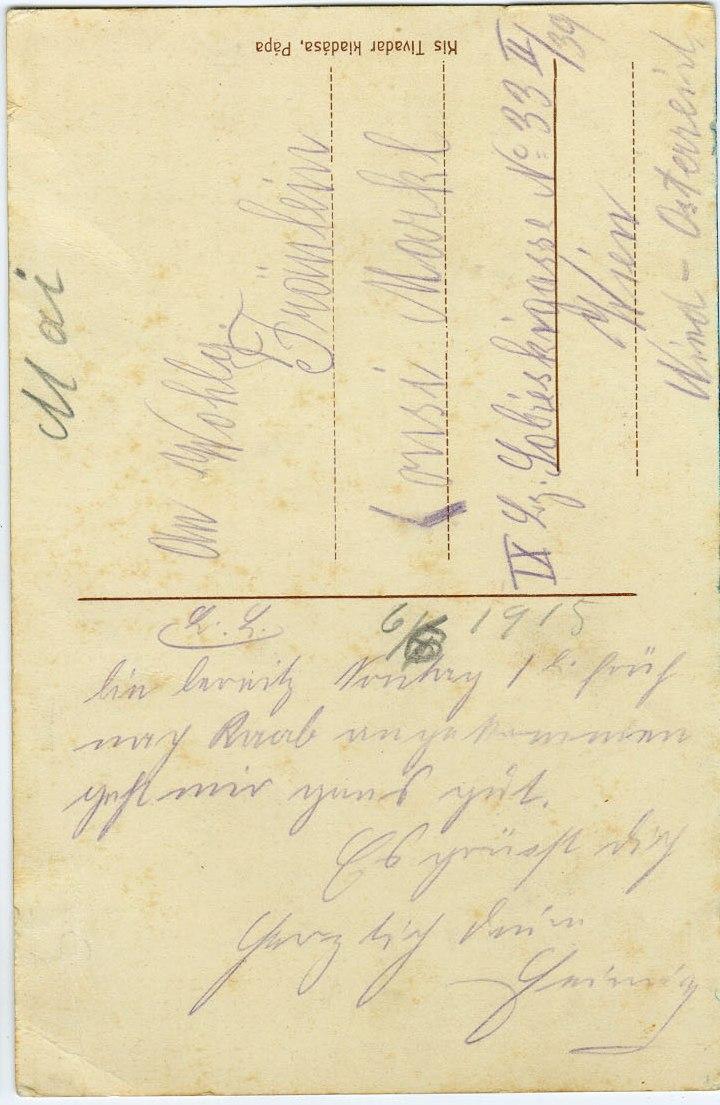 Kis Tivadar kiadása, Pápa
Mai
An Wohlg.
Fräulein
Louisi Markl
IX Bz. Sobieskigasse No 33 II/39
Wien
Österreich
L. L.
6/ 1915
bin bereits 1 früh
nach Raab angekommen
geht mir ganz gut.
Es grüsst dich
herzlich dein